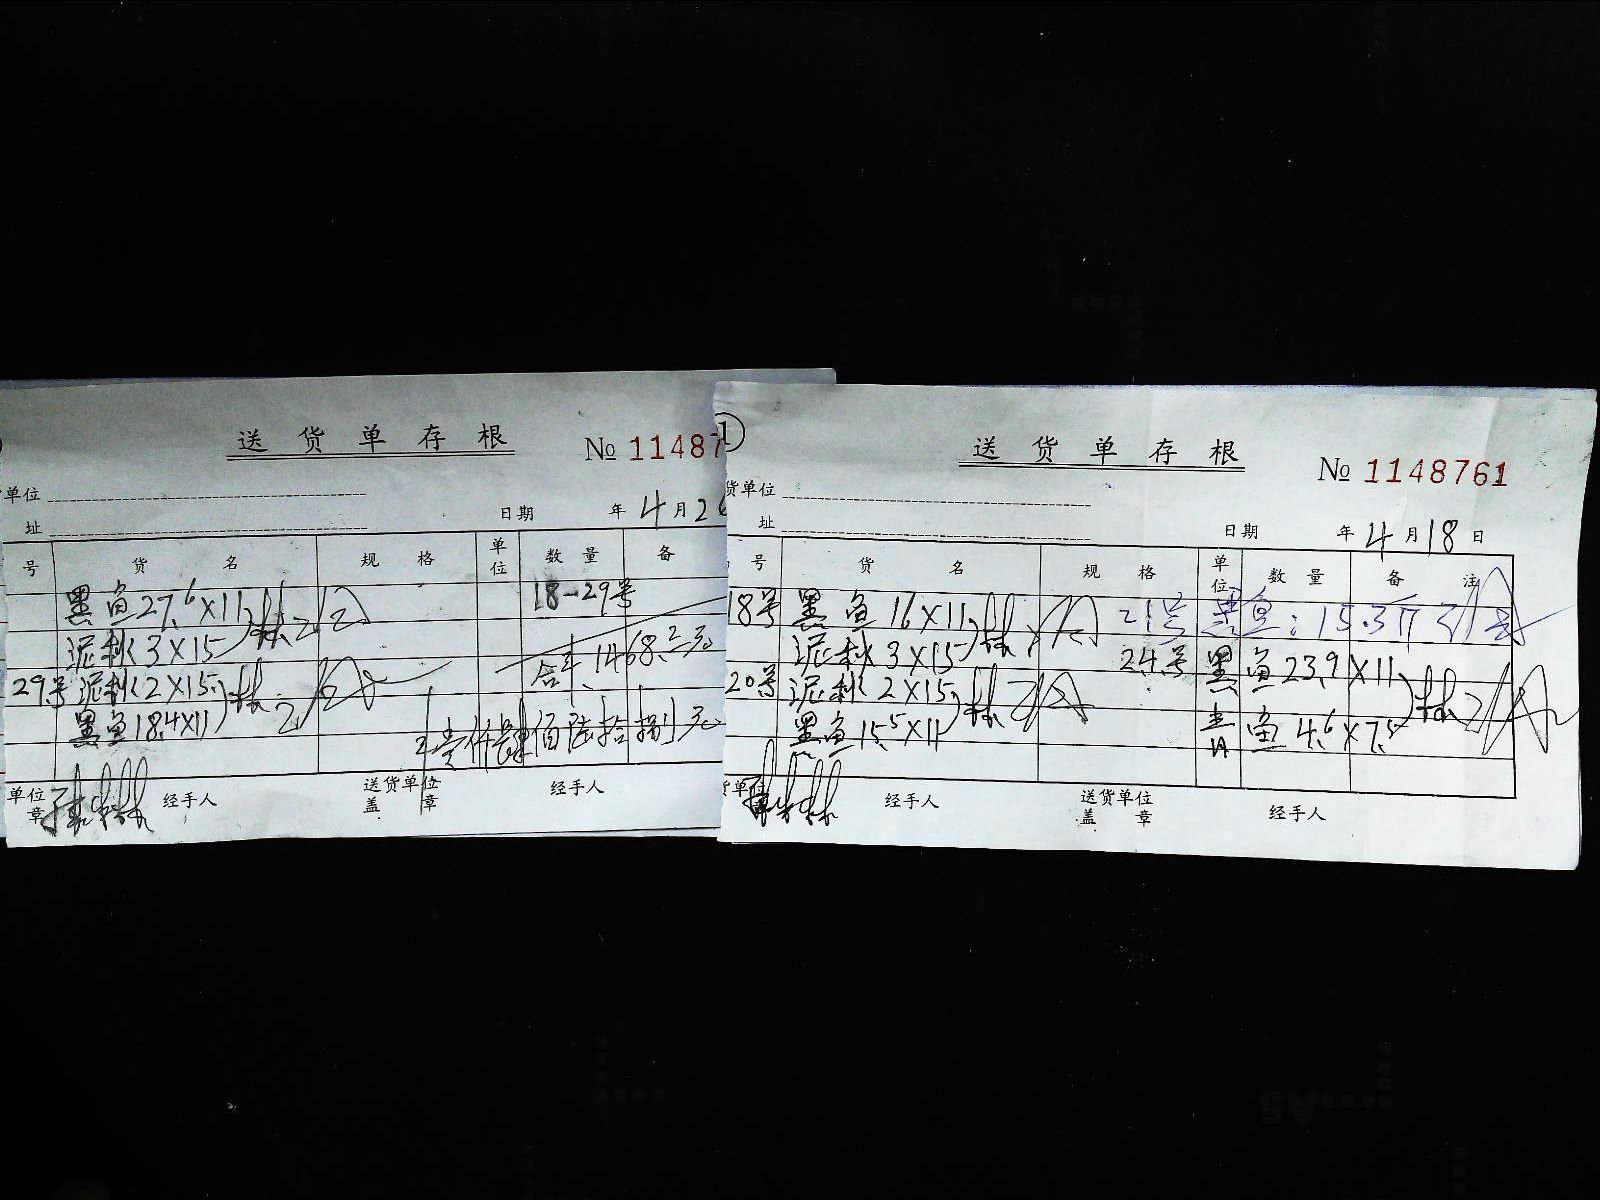 送货单存根
№ 11487
单位
址
日期 年 4 月 2
号 货名 规格 单位 数量 备
黑鱼27.6×11 18-29号
泥秋3×15 合斗:1468.2元
29号 泥秋2×15
黑鱼18.4×11 壹仟肆佰陆拾捌元
单位 章 经手人 送货单位 盖章 经手人
1
送货单存根
№ 1148761
货单位
址
日期 年 4 月 18 日
号 货名 规格 单位 数量 备注
18号 黑鱼 16×11 21号 黑鱼:15.3斤
泥秋3×15 24号 黑鱼23.9×11
20号 泥秋2×15
黑鱼15.5×11 鱼 4.6×7.5
货单位 经手人 送货单位 盖章 经手人